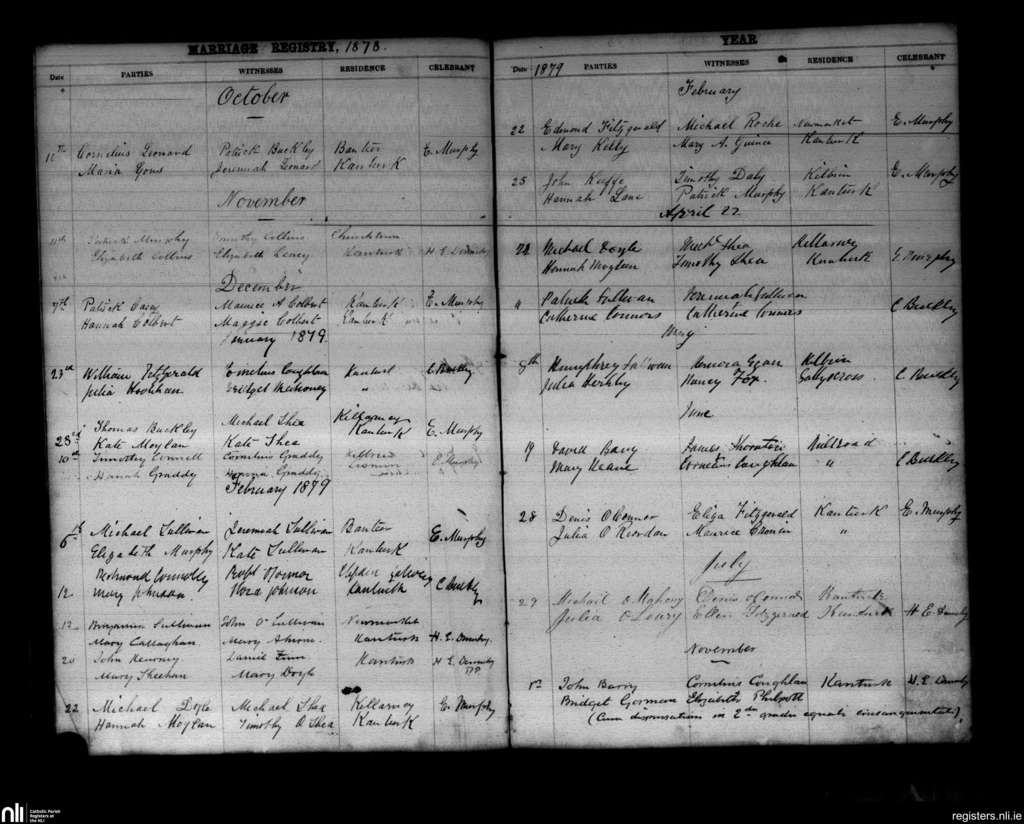 MARRIAGE REGISTRY, 1878.
Date PARTIES WITNESSES RESIDENCE CELEBRANT
October
11th Cornelius Leonard Patrick Buckley Banteer E. Murphy
Maria Jeremiah Leonard Kanturk
November
11th Patrick Murphy Timothy Collins Churchtown
Elizabeth Collins Elizabeth Kanturk H E
December
7th Patrick Casey Maurice A Colbert Kanturk E. Murphy
Hannah Colbert Maggie Colbert Kanturk
January 1879
23rd William Fitzgerald Coughlan Kanturk C Buckley
Julia Hoolihan Bridget Mahoney "
Thomas Buckley Michael Shea Killarney
28th Kate Moylan Kate Shea Kanturk E. Murphy
10th Timothy Connell Cornelius Graddy E Murphy
Hanah Graddy Graddy
February 1879
6th Michael Sullivan Jeremiah Sullivan Banteer E. Murphy
Elizabeth Murphy Kate Sullivan Kanturk
Desmond Connolly Robt OConnor
12 Mary Johnson Nora Johnson Kanturk C Buckley
12 Benjamin Sullivan John O'Sullivan Newmarket
Mary Callaghan Mary Kanturk H. E.
20 John Daniel Kanturk H E
Mary Sheehan Mary Doyle
22 Michael Doyle Michael Shea Killarney E. Murphy
Hannah Moylan Timothy O Shea Kanturk
YEAR
Date 1879 PARTIES WITNESSES RESIDENCE CELEBRANT
February
22 Edmond Fitzgerald Michael Roche Newmarket E. Murphy
Mary Kelly Mary A. Kanturk
25 John Keeffe Timothy Daly Kilbrin E. Murphy
Hannah Lane Patrick Murphy Kanturk
April 22
22 Michael Doyle Michl Shea Killarney E Murphy
Hannah Moylan Timothy Shea Kanturk
" Patrick Sullivan Jeremiah Sullivan C Buckley
Catherine Connors Catherine Connors
May
9th Humphrey Sullivan Egan Kilbrin
Julia Nancy Fox. C Buckley
June
19 Davy James Thornton Millroad
Mary Keane Cornelius Coughlan " C Buckley
28 Denis O'Connor Eliza Fitzgerald Kanturk E. Murphy
Julia O Riordan Maurice Cronin "
July
29 Michael O Mahony Denis O'Connor Kanturk
Julia O'Leary Ellen Fitzgerald Kanturk H E
November
John Barry Cornelius Coughlan Kanturk H. E
Bridget Gorman Elizabeth Philpott
(Cum dispensatione in 2do gradu equalis consanguinitatis).
nli Catholic Parish Registers at the NLI
registers.nli.ie